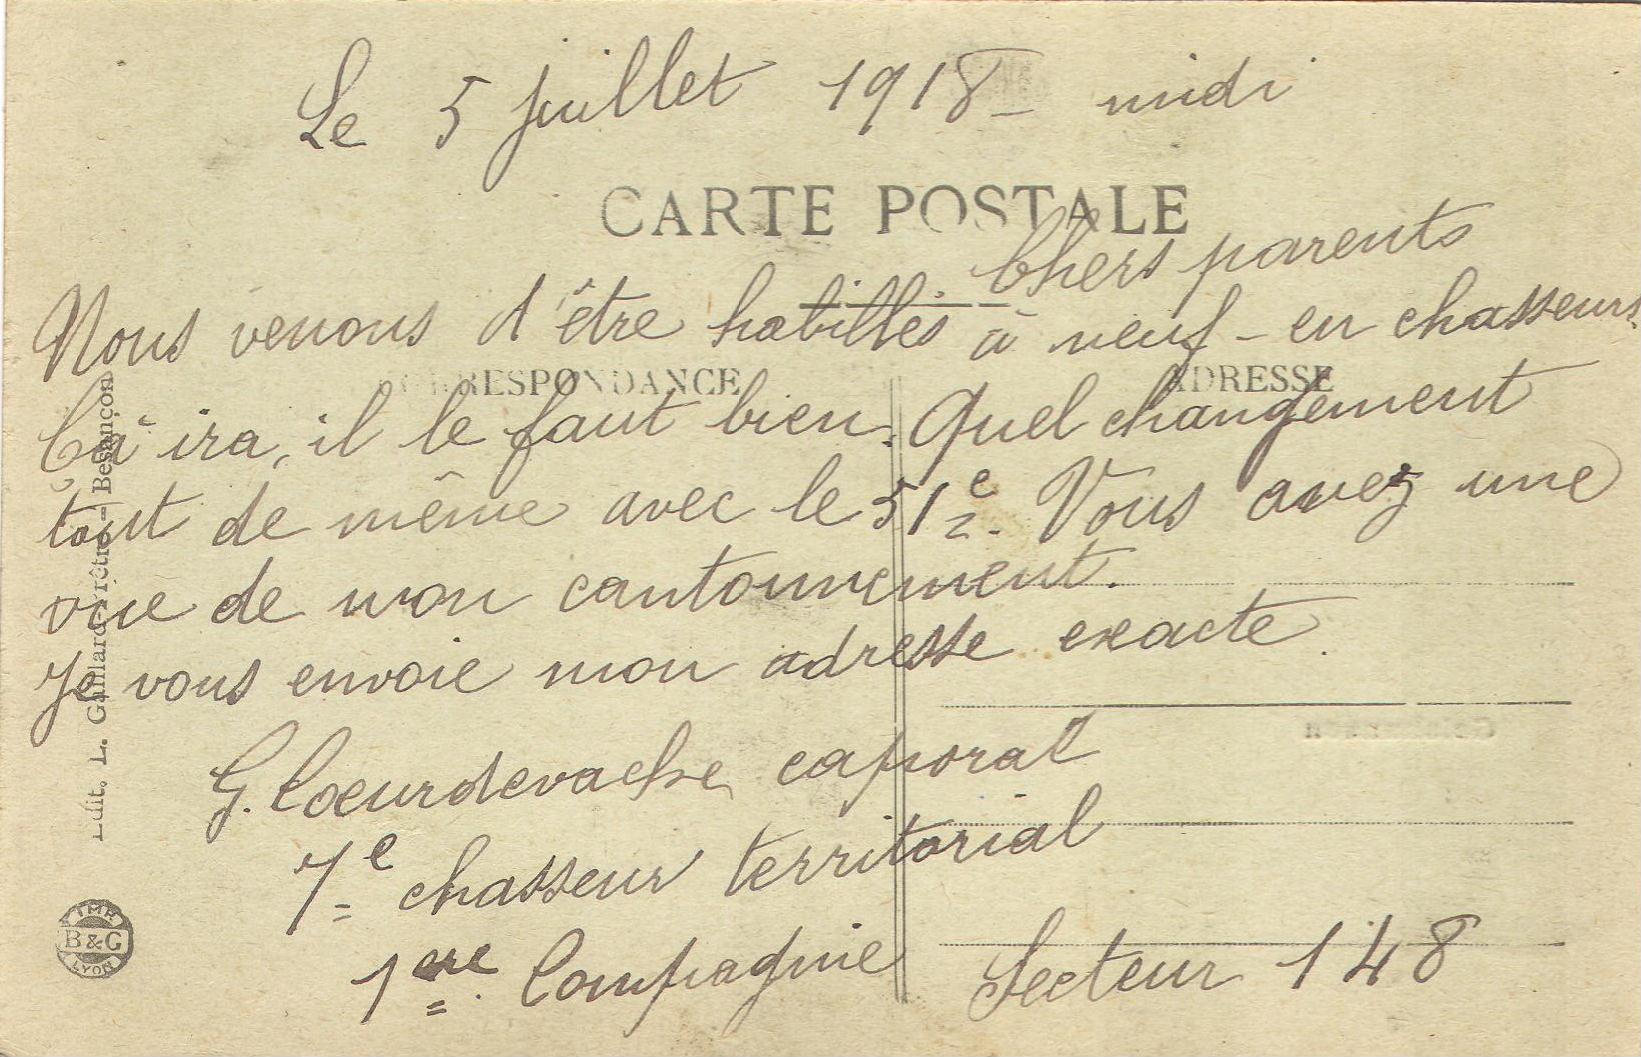 Le 5 juillet 1918 - midi
CARTE POSTALE
Chers parents
Nous venons d'être habillés à neuf - en chasseurs.
CORRESPONDANCE
ADRESSE
Çà ira, il le faut bien. Quel changement
tout de même avec le 51e. Vous avez une
vue de mon cantonnement.
Je vous envoie mon adresse exacte.
G. Coeurdevache, caporal
7e chasseur territorial
1ère Compagnie Secteur 148
Edit. L. Gaillard-Prêtre - Besançon
IMP B&G LYON